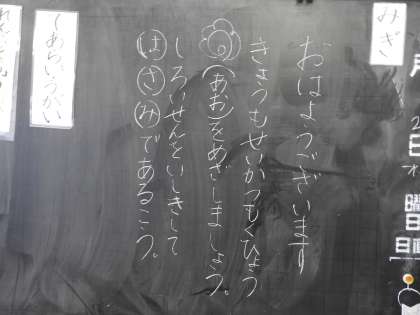 みぎ
日
曜
日
おはようございます
きょうもせいかつもくひょう
(あお)をめざしましょう。
しろいせんをいしきして
はさみであるこう。
しあらいうがい